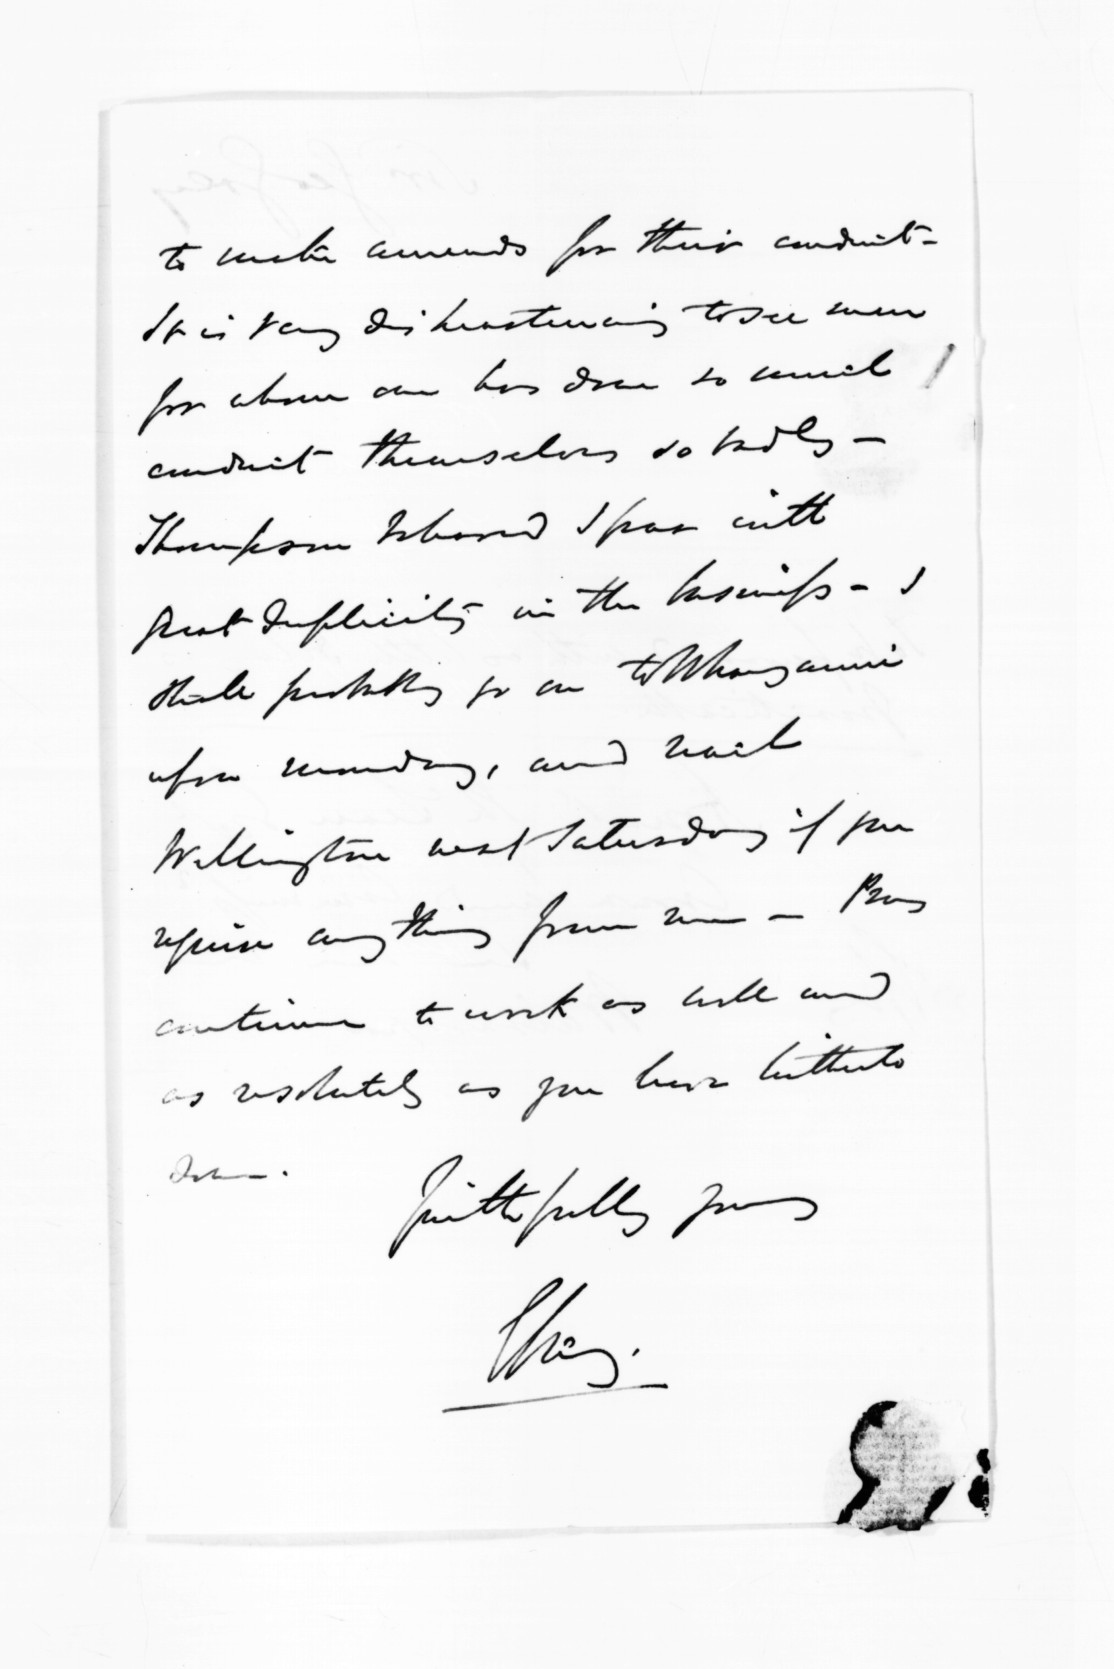 to make amends for their conduct -
It is very disheartening to see men
for whom one has done so much
conduct themselves so badly -
Thompson behaved I fear with
great duplicity in the business - I
shall probably go on to Whanganui
upon Monday, and reach
Wellington next Saturday if you
require anything from me - Pray
continue to work as well and
as resolutely as you have hitherto
done.
Faithfully yours
G Grey.